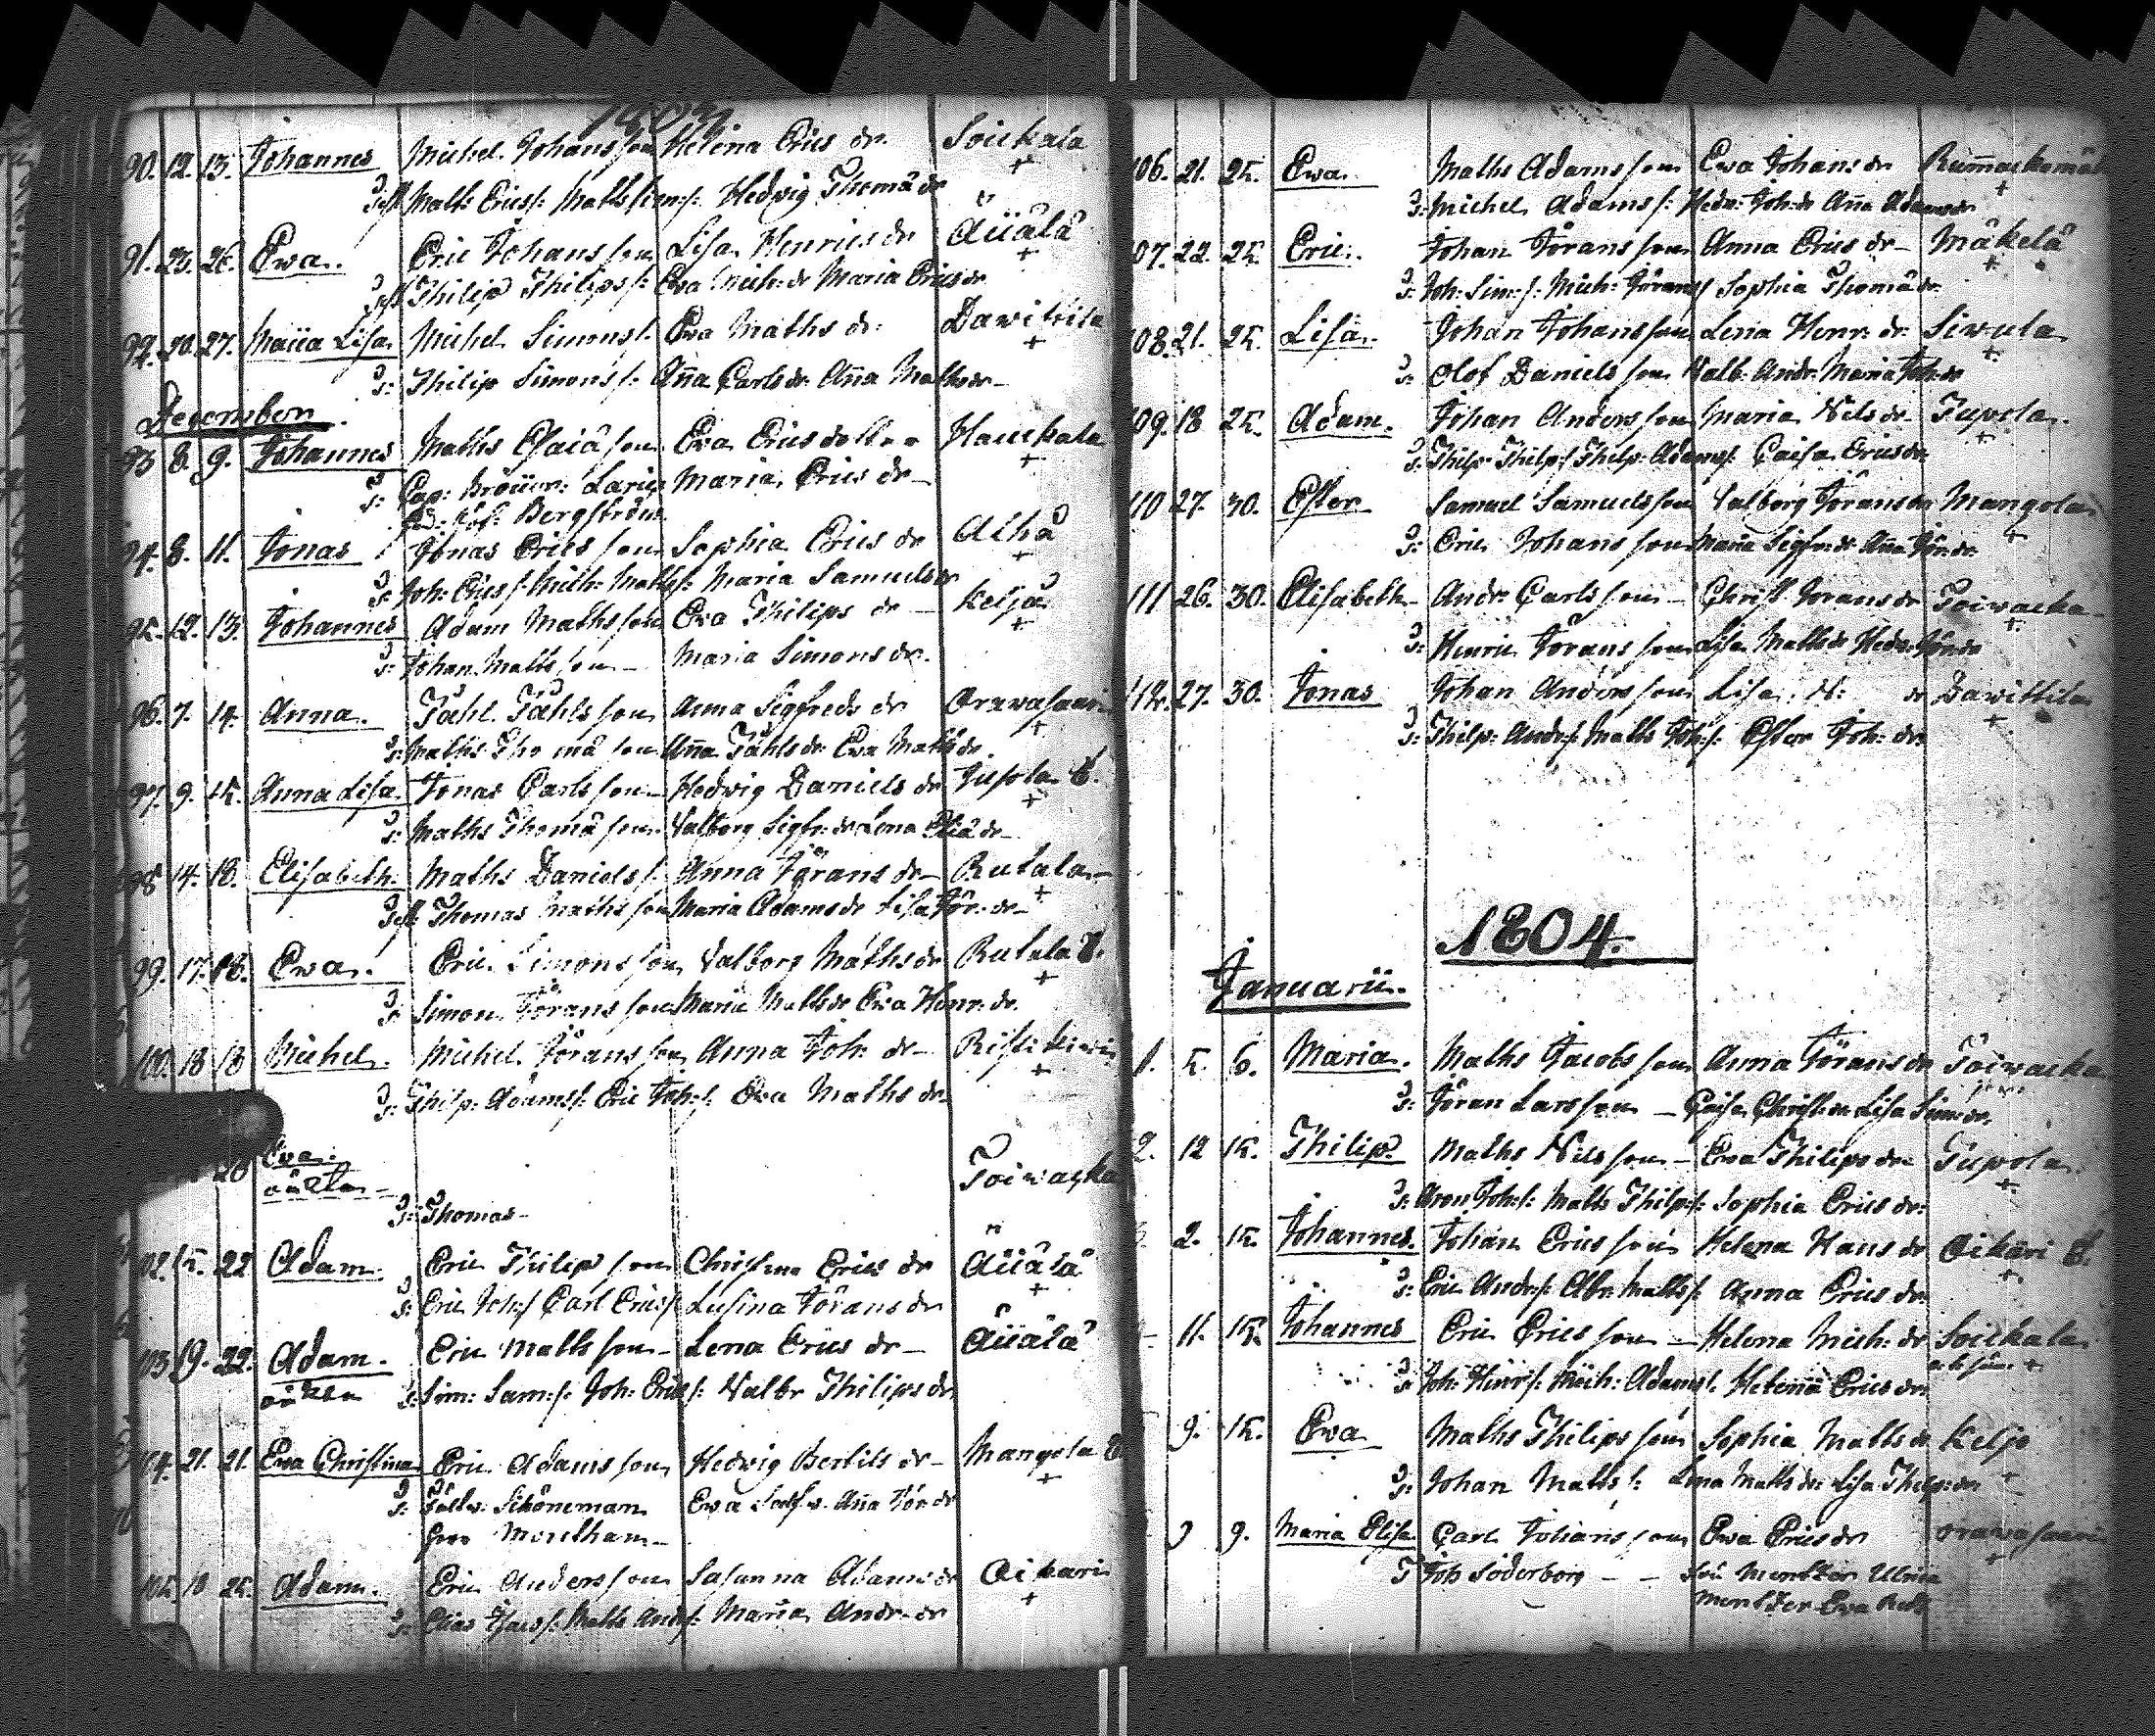 1803.
90. 12. 13. Johannes Michel Johansson Helena Erics dr. Soickala +
Mats Ericss: Mats Hedwig Thomä dr
91. 23. 26. Ewa. Eric Johansson Lisa Henrics dr Äijälä +
Philip Philipss: Ewa Mich: dr Maria Erics dr
92. 20. 27. Maija Lisa Michel Simonss. Ewa Maths dr: Dawittila +
Philip Simonss: Aña Carls dr. Aña Maths dr
December.
93 8. 9. Johannes Maths Esaiä son Ewa Erics dotter Hauckala +
Maria Erics dr
Bergström
94. 8. 11. Jonas Jonas Ericsson Sophia Erics dr Alhå +
Joh: Ericss: Mich: Matss: Maria Samuels dr
95. 12. 13. Johannes Adam Mathsson Ewa Philips dr Keljå +
Johan Matsson Maria Simons dr.
96. 7. 14. Anna. Påhl Påhlsson Anna Sigfreds dr Orawasaari +
Maths Thomä son Aña Påhls dr Ewa Maths dr.
97. 9. 15. Anna Lisa. Jonas Carlsson Hedwig Daniels dr Jupola +
Maths Thomä son Valborg Sigfr: dr Lena Eliä dr
98 14. 18. Elisabeth. Maths Danielss: Anna Jörans dr Rutala +
Thomas Mathsson Maria Adams dr Lisa Jör: dr
99. 17. 18. Ewa. Eric Simonsson Valborg Maths dr Rutala +
Simon Jöransson Maria Mats dr Ewa Henr: dr.
100. 18 18 Michel. Michel Jöransson Anna Joh: dr Ristikivi +
Philp: Adamss: Eric Joh:s: Ewa Maths dr.
20 Ewa. oäkta Toiwacka
Thomas
102. 15. 22 Adam. Eric Philipsson Christina Erics dr Äijälä +
Eric Joh:s: Carl Ericss: Lusina Jörans dr
103 19. 22. Adam. Eric Matsson Lena Erics dr Äijälä
oäkta Sim: Sam:s: Joh: Ericss: Valbr Philips dr
104. 21. 21. Ewa Christina Eric Adamsson Hedwig Bertils dr Mangola +
Fältw: Schöneman Ewa Aña Jör: dr
105. 18 25. Adam. Eric Andersson Susanna Adams dr Oikari +
Elias Mats Ands: Maria Andr: dr
106. 21. 25. Ewa. Maths Adamsson Ewa Johans dr +
Michel Adamss: Hedw: Joh: dr Aña Adams dr
107. 22. 25. Eric. Johan Jöransson Anna Erics dr Mäkelä +
Joh: Sim:s: Mich: Jörans: Sophia Thomä dr
108. 21. 25. Lisa. Johan Johansson Lena Henr: dr. Siwula +
Olof Danielsson Walb: Andr: Maria Joh: dr
109. 18 25. Adam. Johan Andersson Maria Nils dr Jupola. +
Philp: Philp:s: Philp: Adams: Caisa Erics dr.
110 27. 30. Ester Samuel Samuelsson Valborg Jörans dr Mangola +
Eric Johansson Maria Sigfr: dr Aña Jör: dr
111 26. 30. Elisabeth Andr: Carlsson Christ: Jörans dr Toiwacka +
Henric Jöransson Lisa Mats dr Hedw: Jör: dr
112. 27. 30. Jonas Johan Andersson Lisa M: dr Dawittila +
Philp: Andr:s: Mats Joh:s: Ester Joh: dr
1804.
Januarii.
1. 5. 6. Maria. Maths Jacobsson Anna Jörans dr Toiwacka
Jöran Larsson Caisa Christ: dr Lisa Sim: dr.
2. 12 15. Philip. Maths Nilsson Ewa Philips dr Jupola. +
Aron Joh:s: Mats Philp:s: Sophia Erics dr:
2. 15. Johannes. Johan Ericsson Helena Hans dr Oikari +
Eric Andr:s: Abr: Matss: Anna Erics dr:
11. 15. Johannes Eric Ericsson Helena Mich: dr Soickala +
Joh: Henr:s: Mich: Adamss: Helena Erics dr
9. 15. Ewa Maths Philipsson Sophia Mats dr Keljo +
Johan Matss: Lena Mats dr: Lisa Philp: dr
9. Maria Elisa Carl Johansson Ewa Erics dr Orawasaari +
Joh Söderborg Ulrica
Ewa